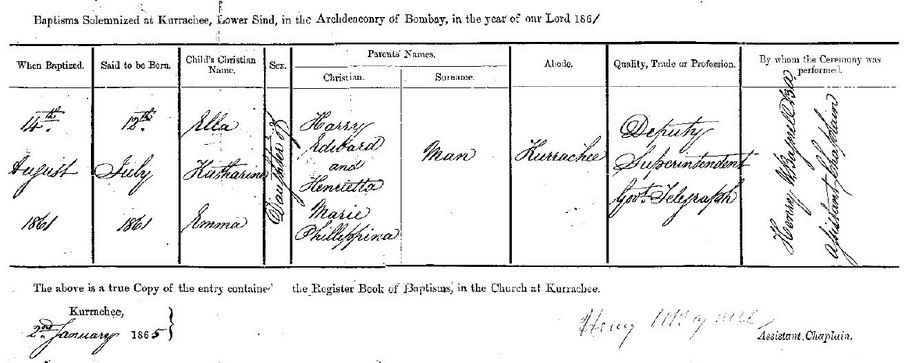 Baptisms Solemnized at Kurrachee, Lower Sind, in the Archdeaconry of Bombay, in the year of our Lord 1861
When Baptized. Said to be Born. Child's Christian Name. Sex. Parents' Names. Abode. Quality, Trade or Profession. By whom the Ceremony was performed.
Christian. Surname.
14th August 1861
12th July 1861
Ella Katharine Emma
Daughter of
Harry Edward and Henrietta Marie Phillippina
Man
Kurrachee
Deputy Superintendent Govt. Telegraph
Henry
Assistant Chaplain
The above is a true Copy of the entry contained the Register Book of Baptisms, in the Church at Kurrachee.
Kurrachee,
2nd January 1865
Henry
Assistant Chaplain.